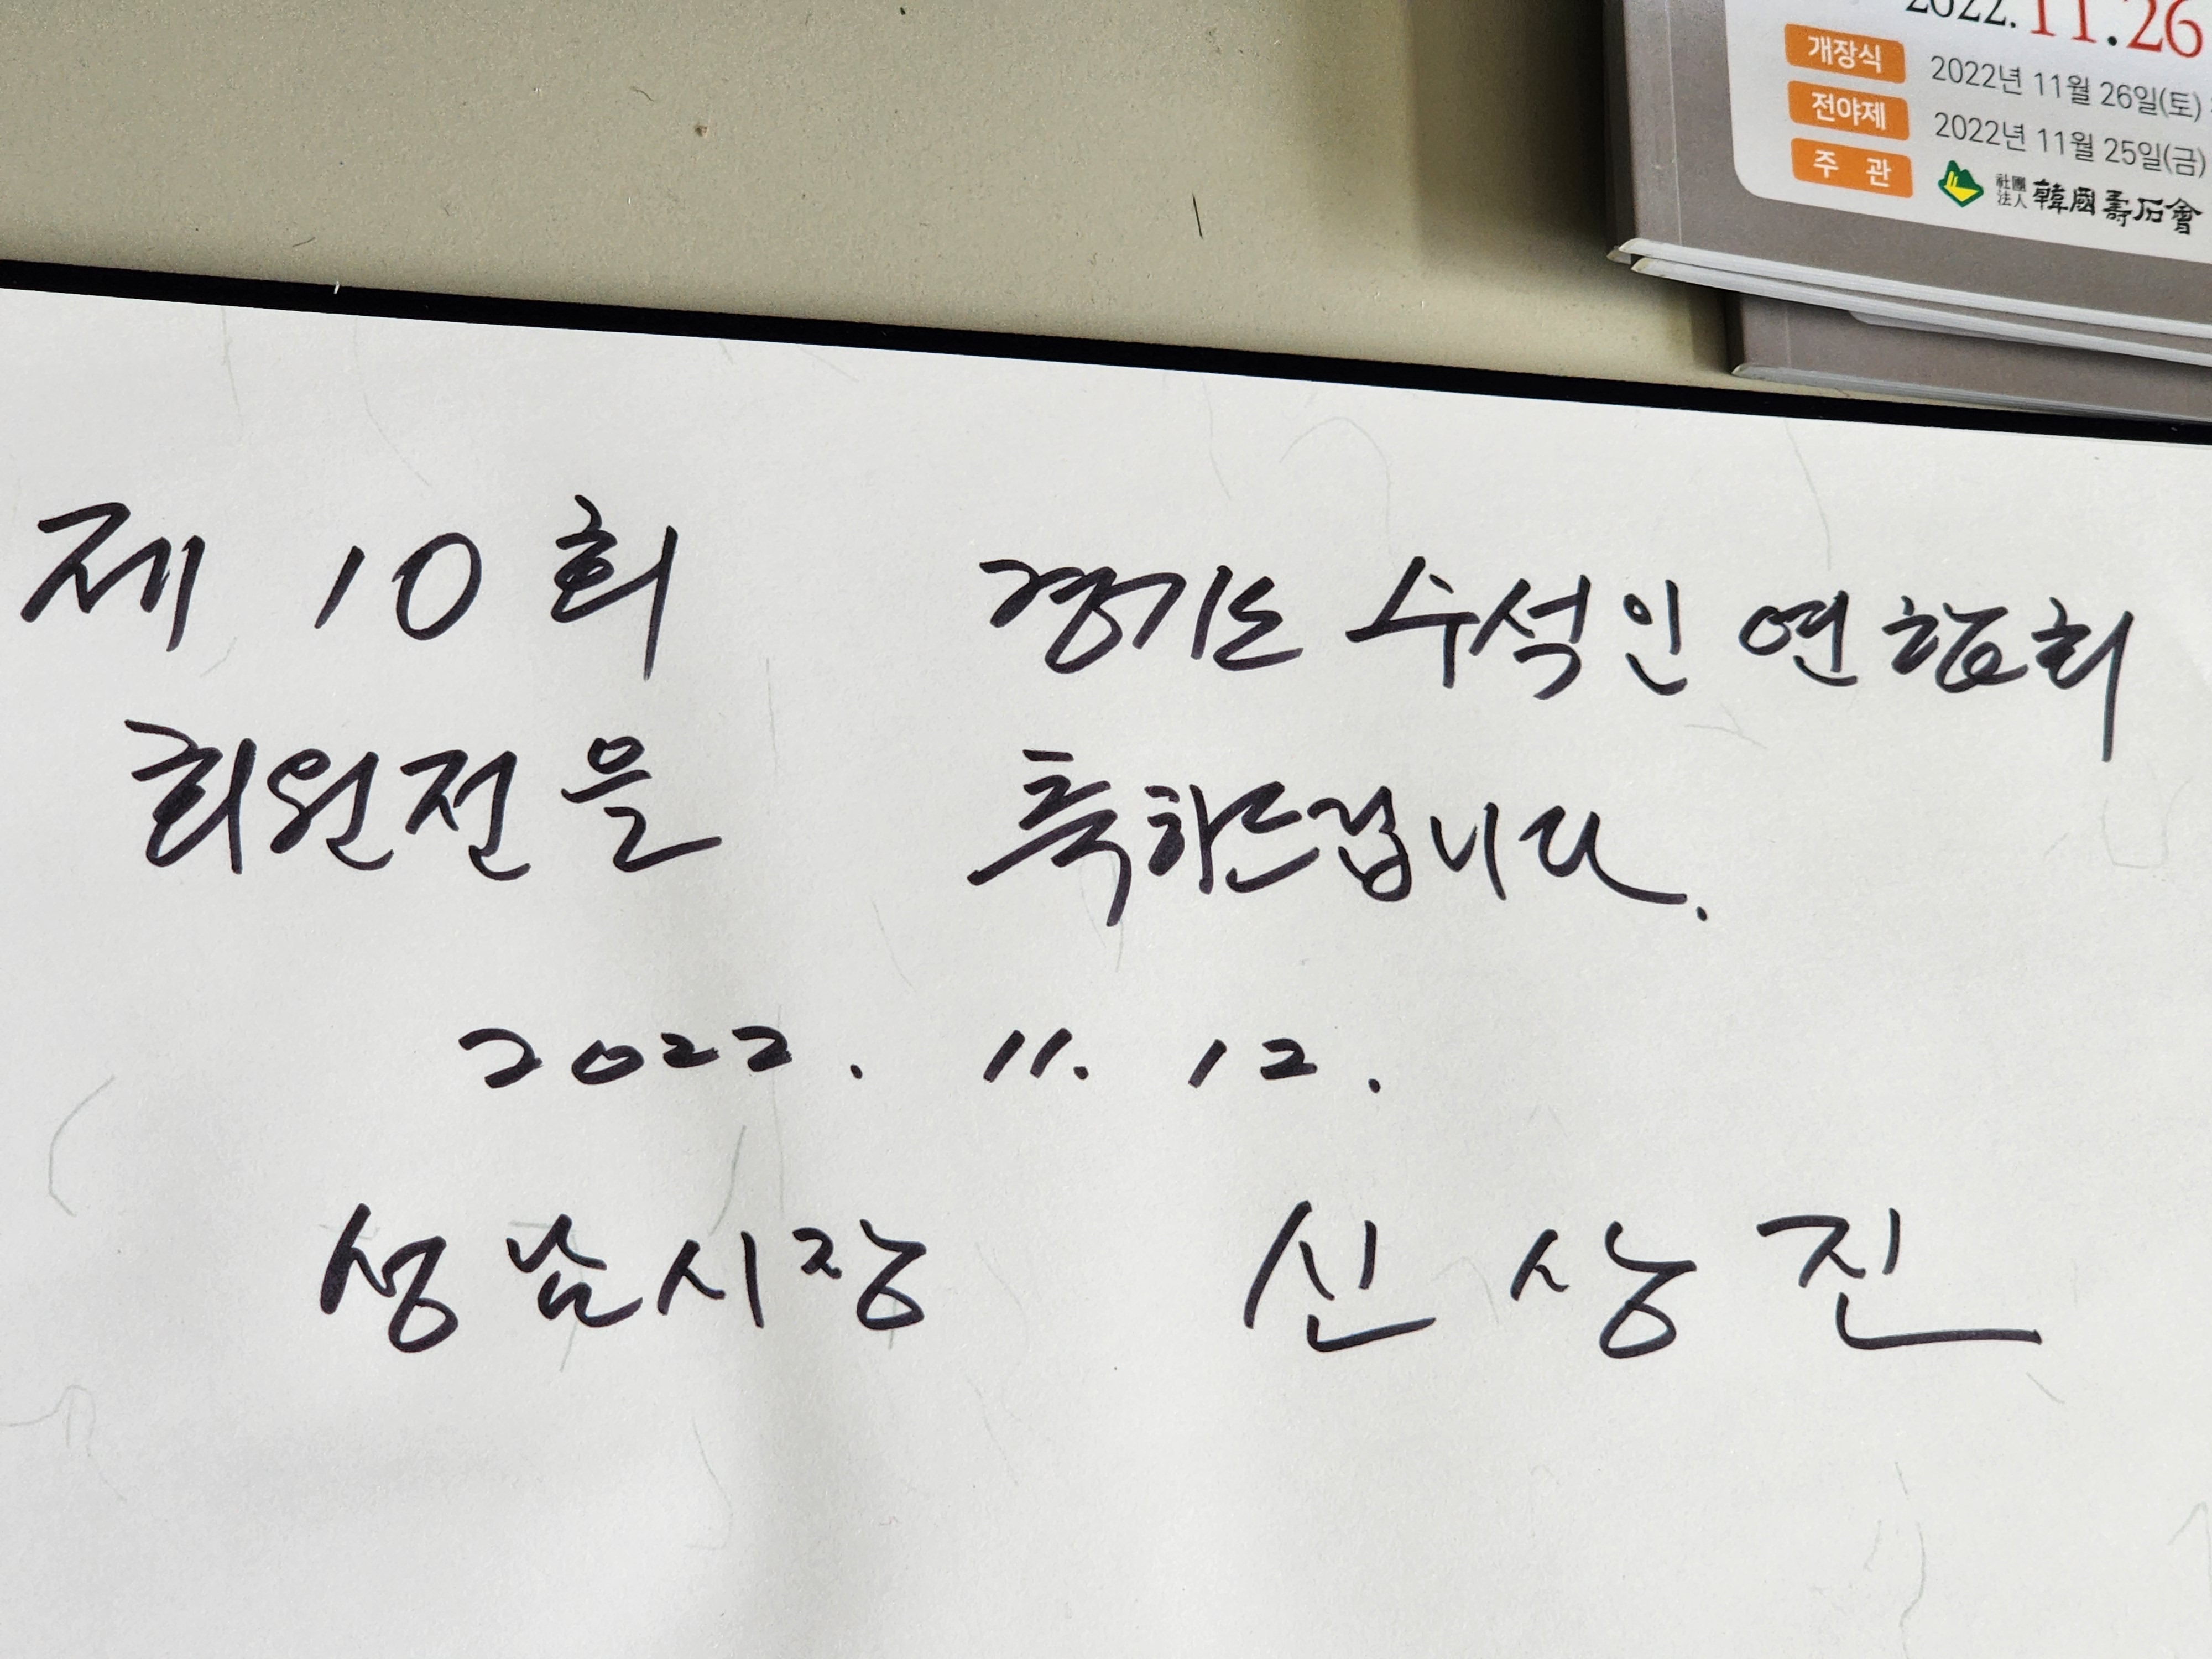 2022.11.26
개장식 2022년 11월 26일(토)
전야제 2022년 11월 25일(금)
주 관 社團法人 韓國壽石會
제 10회 경기도 수석인 연합회
회원전을 축하드립니다.
2022. 11. 12.
성남시장 신상진